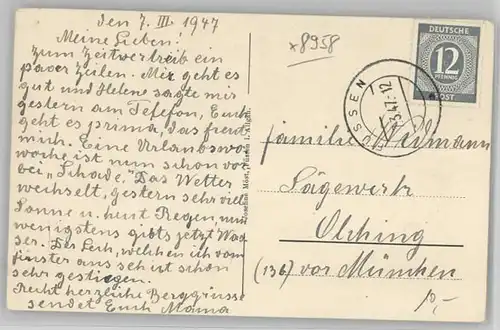 den 7. III. 1947
Meine Lieben!
Zum Zeitvertreib ein
paar Zeilen. Mir geht es
gut und Helene sagte mir
gestern am Telefon, Euch
geht es prima, das freut
mich. Eine Urlaubswo-
woche ist nun schon vor
bei „Schade." Das Wetter
wechselt, gestern sehr viel
Sonne u. heut Regen, nun
wenigstens gibts jetzt Was
ser. Der Lech, welchen ich vom
finster aus seh ist schon
sehr gestiegen.
Recht herzliche Berggrüsse
sendet Euch Mama
x8958
DEUTSCHE
12
PFENNIG
POST
FÜSSEN
3.47.-12
Familie Widmann
Sägewerk
Olching
(13b) vor München